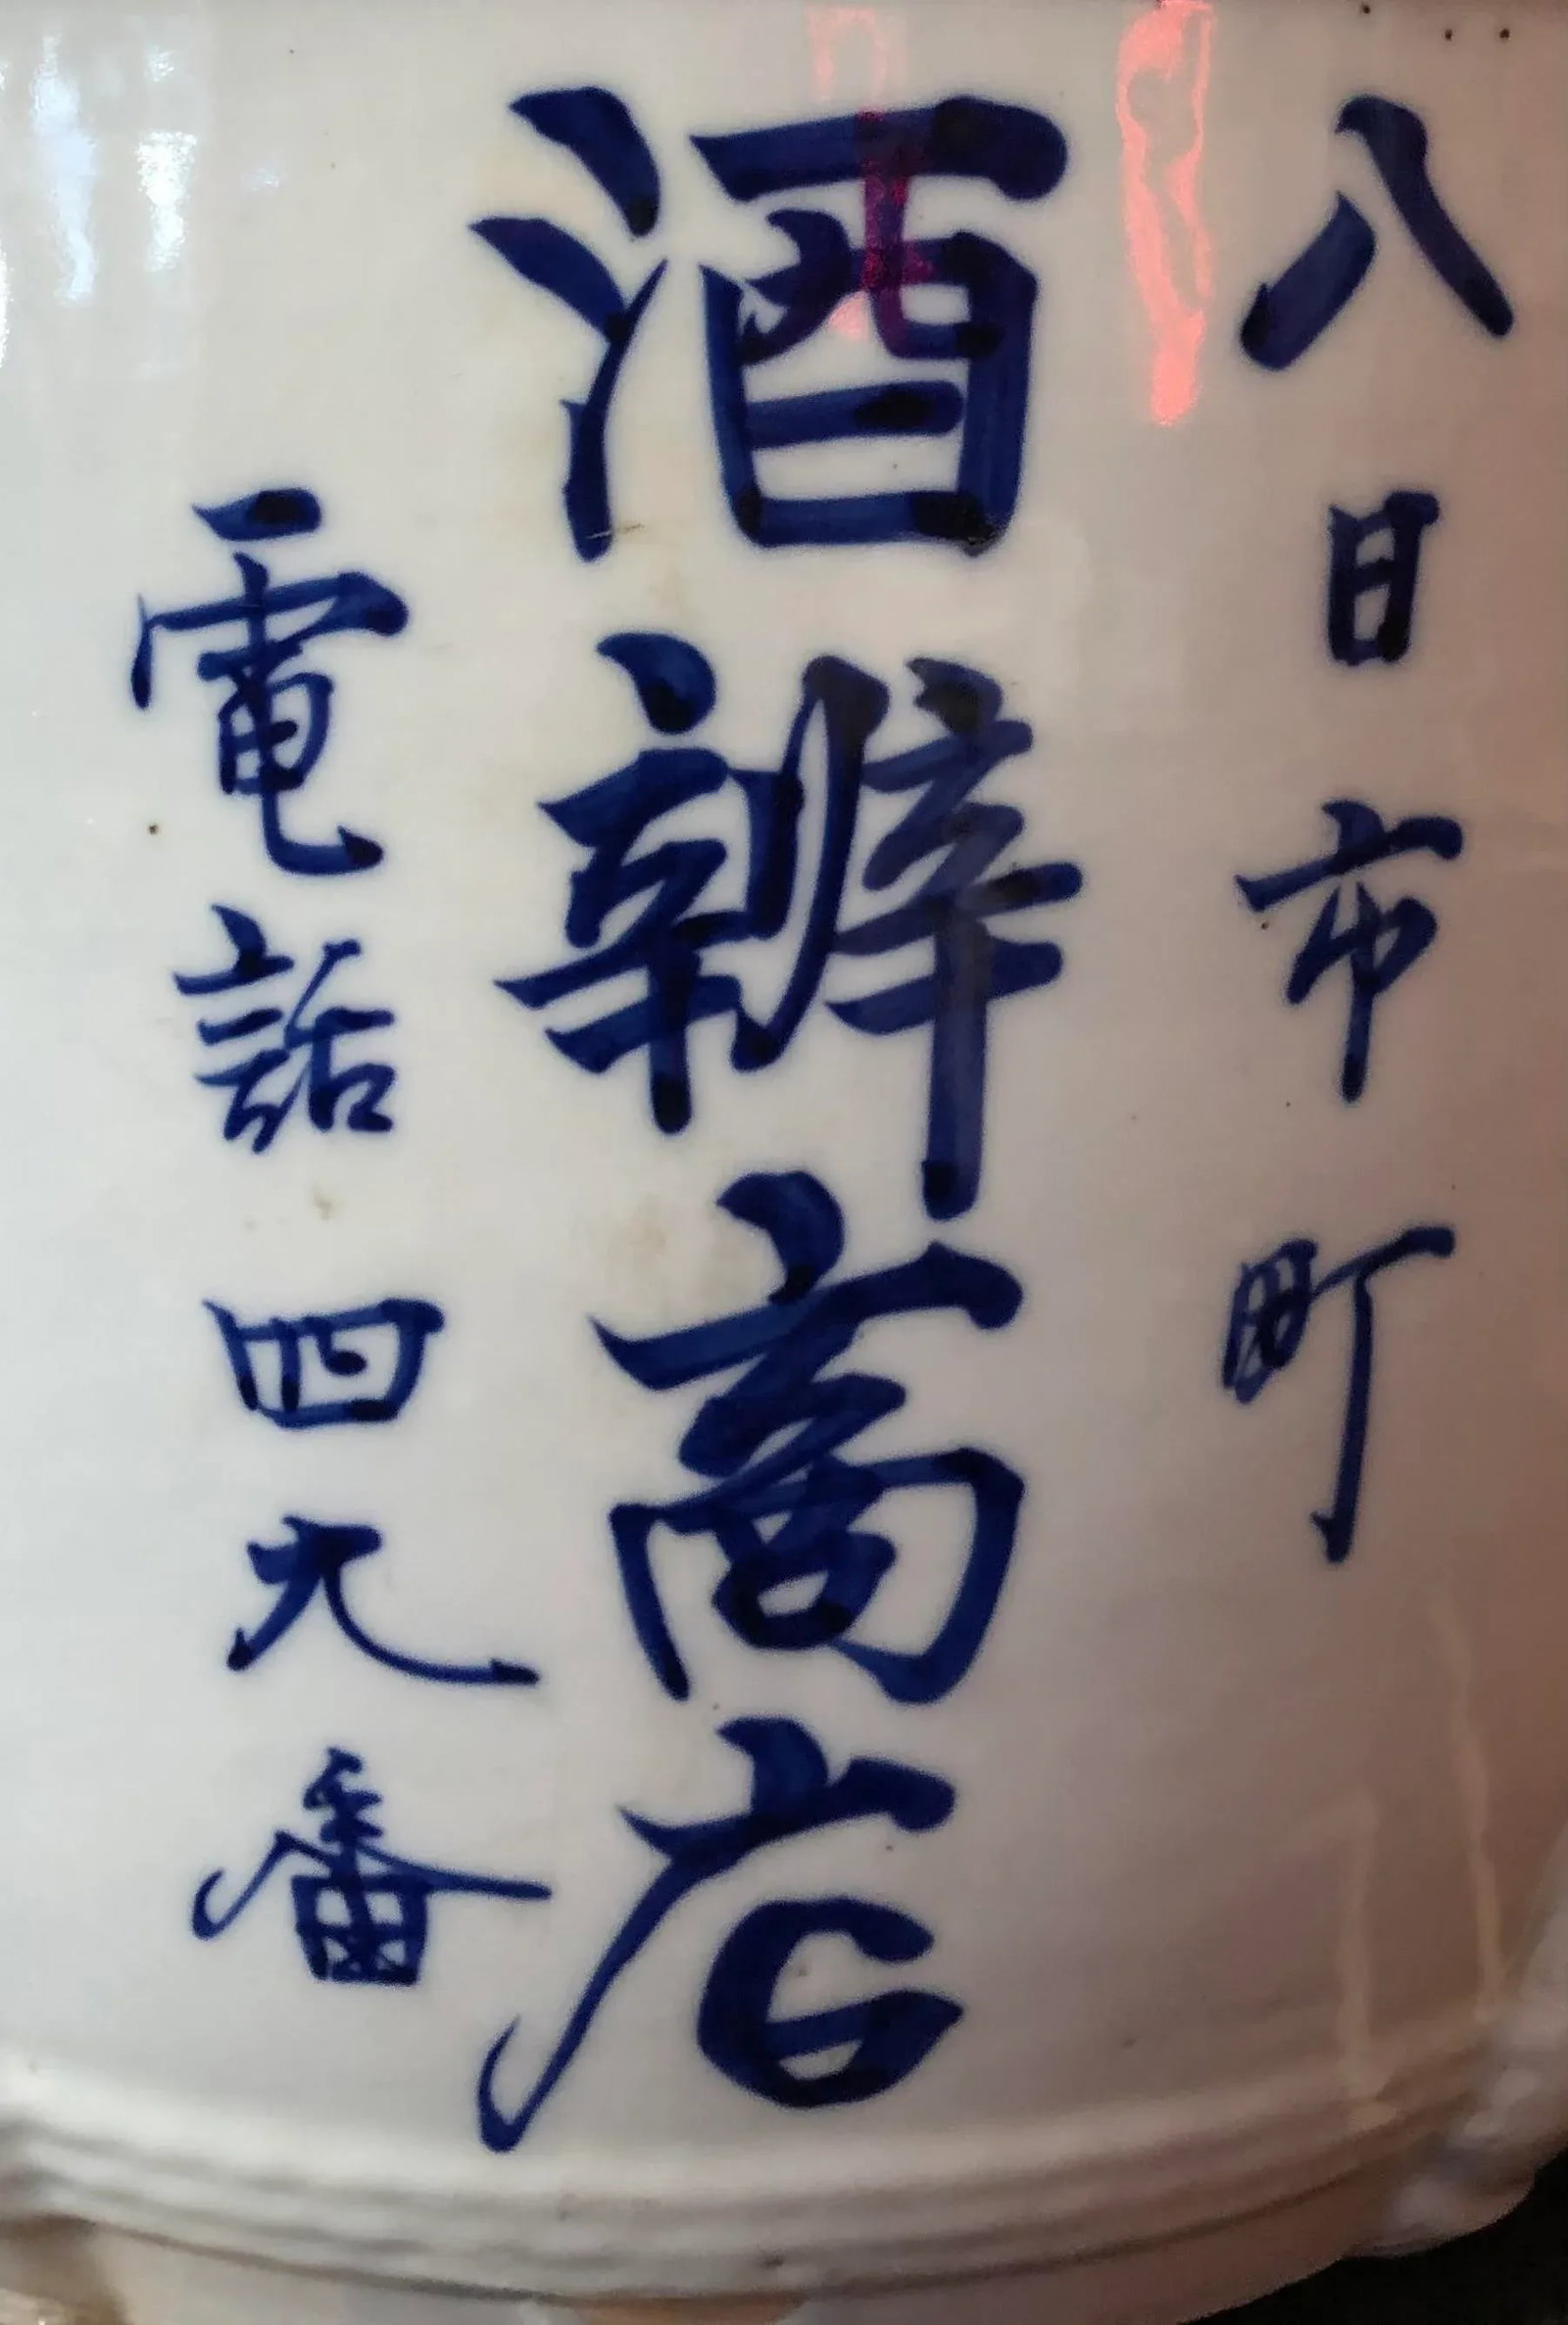 八日市町
酒辨商店
電話四九番